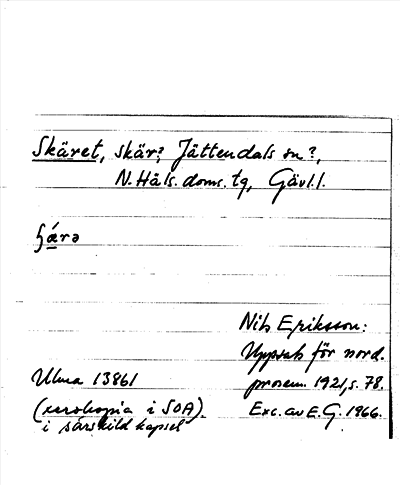 Skäret, skär?, Jättendals sn?,
N. Häls. doms. tg, Gävl. l.
Nils Eriksson:
Uppsats för nord.
prosem. 1921, s. 78.
Exc. av E. G. 1966.
Ulma 13861
(xerokopia i SOA)
i särskild kapsel